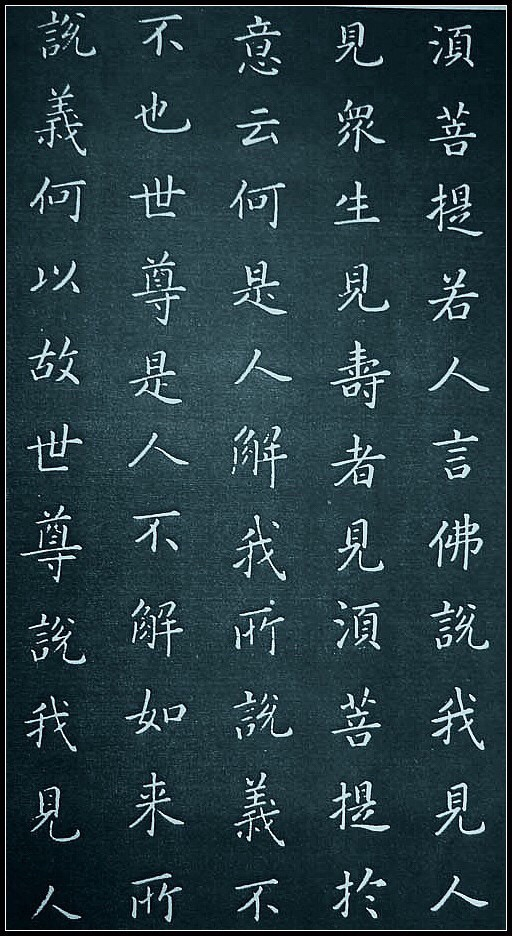 湏菩提若人言佛說我見人
見衆生見壽者見湏菩提於
意云何是人解我所說義不
不也世尊是人不解如来所
說義何以故世尊說我見人